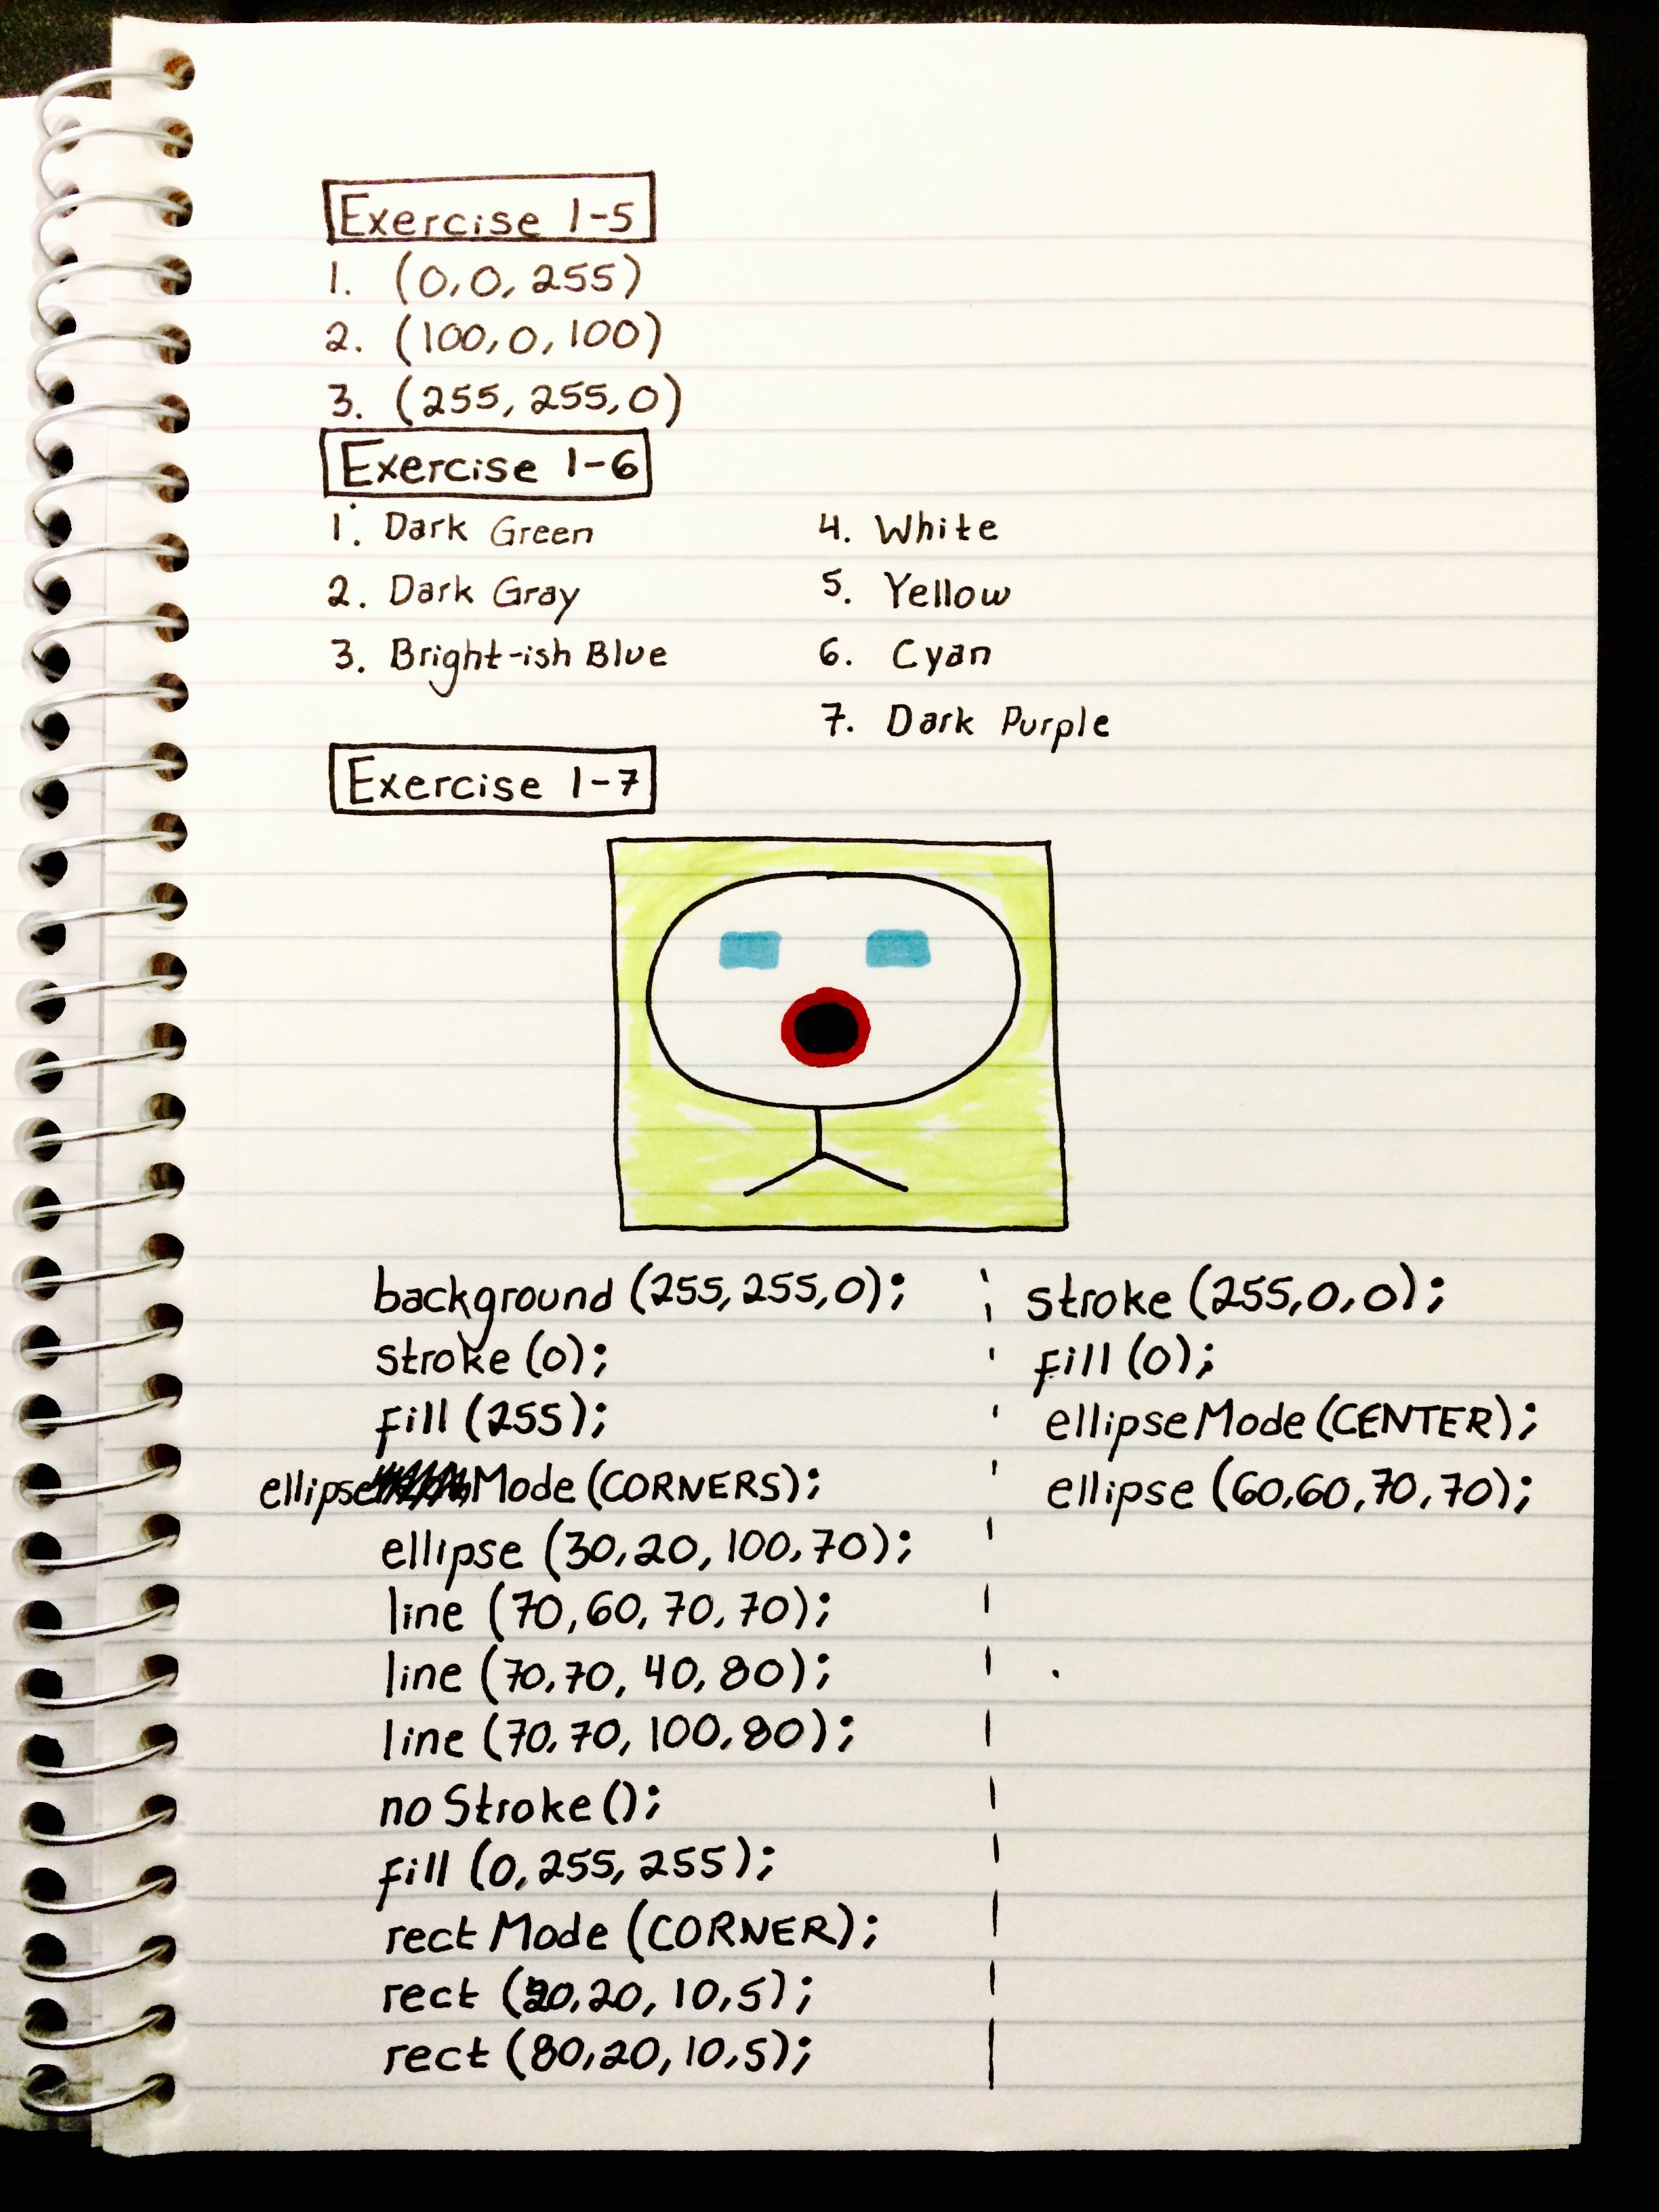 Exercise 1-5
1. (0,0,255)
2. (100,0,100)
3. (255,255,0)
Exercise 1-6
1. Dark Green
2. Dark Gray
3. Bright-ish Blue
4. White
5. Yellow
6. Cyan
7. Dark Purple
Exercise 1-7
background (255,255,0);
stroke (0);
fill (255);
ellipseMode (CORNERS);
ellipse (30,20,100,70);
line (70,60,70,70);
line (70,70,40,80);
line (70,70,100,80);
noStroke();
fill (0,255,255);
rectMode (CORNER);
rect (20,20,10,5);
rect (80,20,10,5);
stroke (255,0,0);
fill (0);
ellipseMode (CENTER);
ellipse (60,60,70,70);